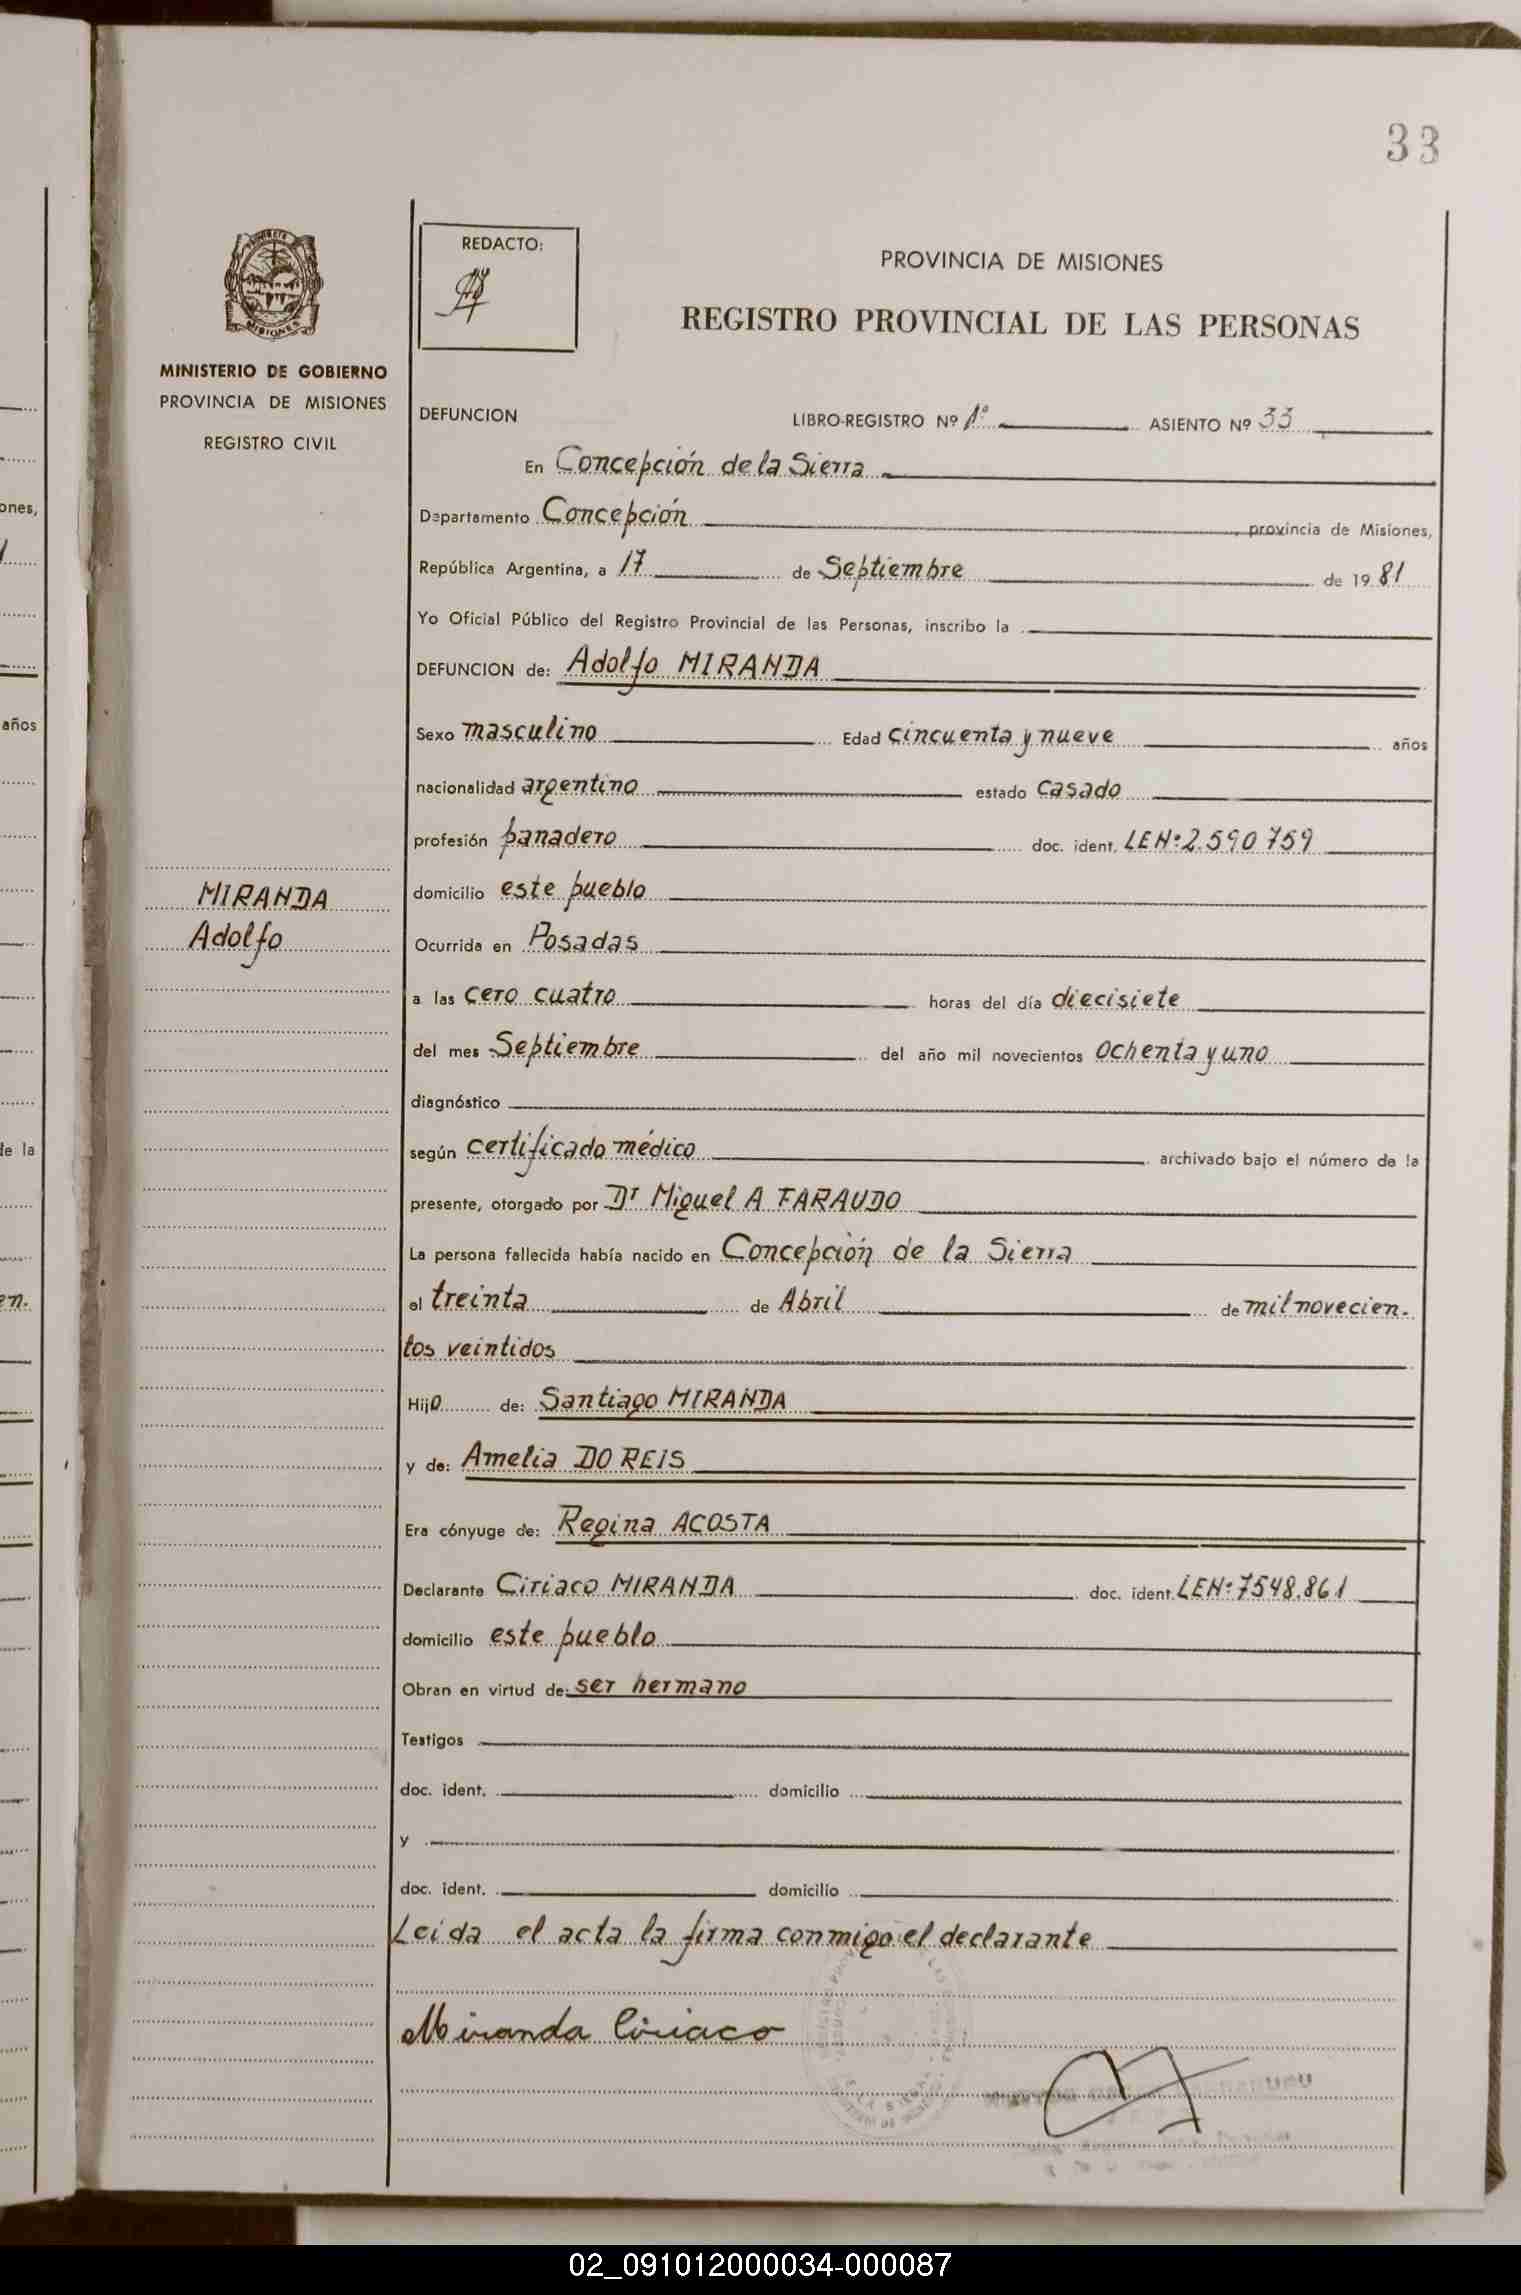 33
REDACTO:
PROVINCIA DE MISIONES
REGISTRO PROVINCIAL DE LAS PERSONAS
MISIONES
MINISTERIO DE GOBIERNO
PROVINCIA DE MISIONES
REGISTRO CIVIL
DEFUNCION LIBRO-REGISTRO Nº 1º ASIENTO Nº 33
En Concepción de la Sierra
Departamento Concepción, provincia de Misiones,
República Argentina, a 17 de Septiembre de 1981
Yo Oficial Público del Registro Provincial de las Personas, inscribo la
DEFUNCION de: Adolfo MIRANDA
Sexo masculino Edad cincuenta y nueve años
nacionalidad argentino estado casado
profesión panadero doc. ident. LEN:2.590759
domicilio este pueblo
MIRANDA
Adolfo
Ocurrida en Posadas
a las cero cuatro horas del día diecisiete
del mes Septiembre del año mil novecientos ochenta y uno
diagnóstico
según certificado médico archivado bajo el número de la
presente, otorgado por Dr Miguel A FARAUDO
La persona fallecida había nacido en Concepción de la Sierra
el treinta de Abril de mil novecien.
tos veintidos
Hijo de: Santiago MIRANDA
y de: Amelia DO REIS
Era cónyuge de: Regina ACOSTA
Declarante Ciriaco MIRANDA doc. ident. LEN:7548.861
domicilio este pueblo
Obran en virtud de: ser hermano
Testigos
doc. ident. domicilio
y
doc. ident. domicilio
Leida el acta la firma conmigo el declarante
Miranda Ciriaco
ones,
años
de la
en.
02_091012000034-000087